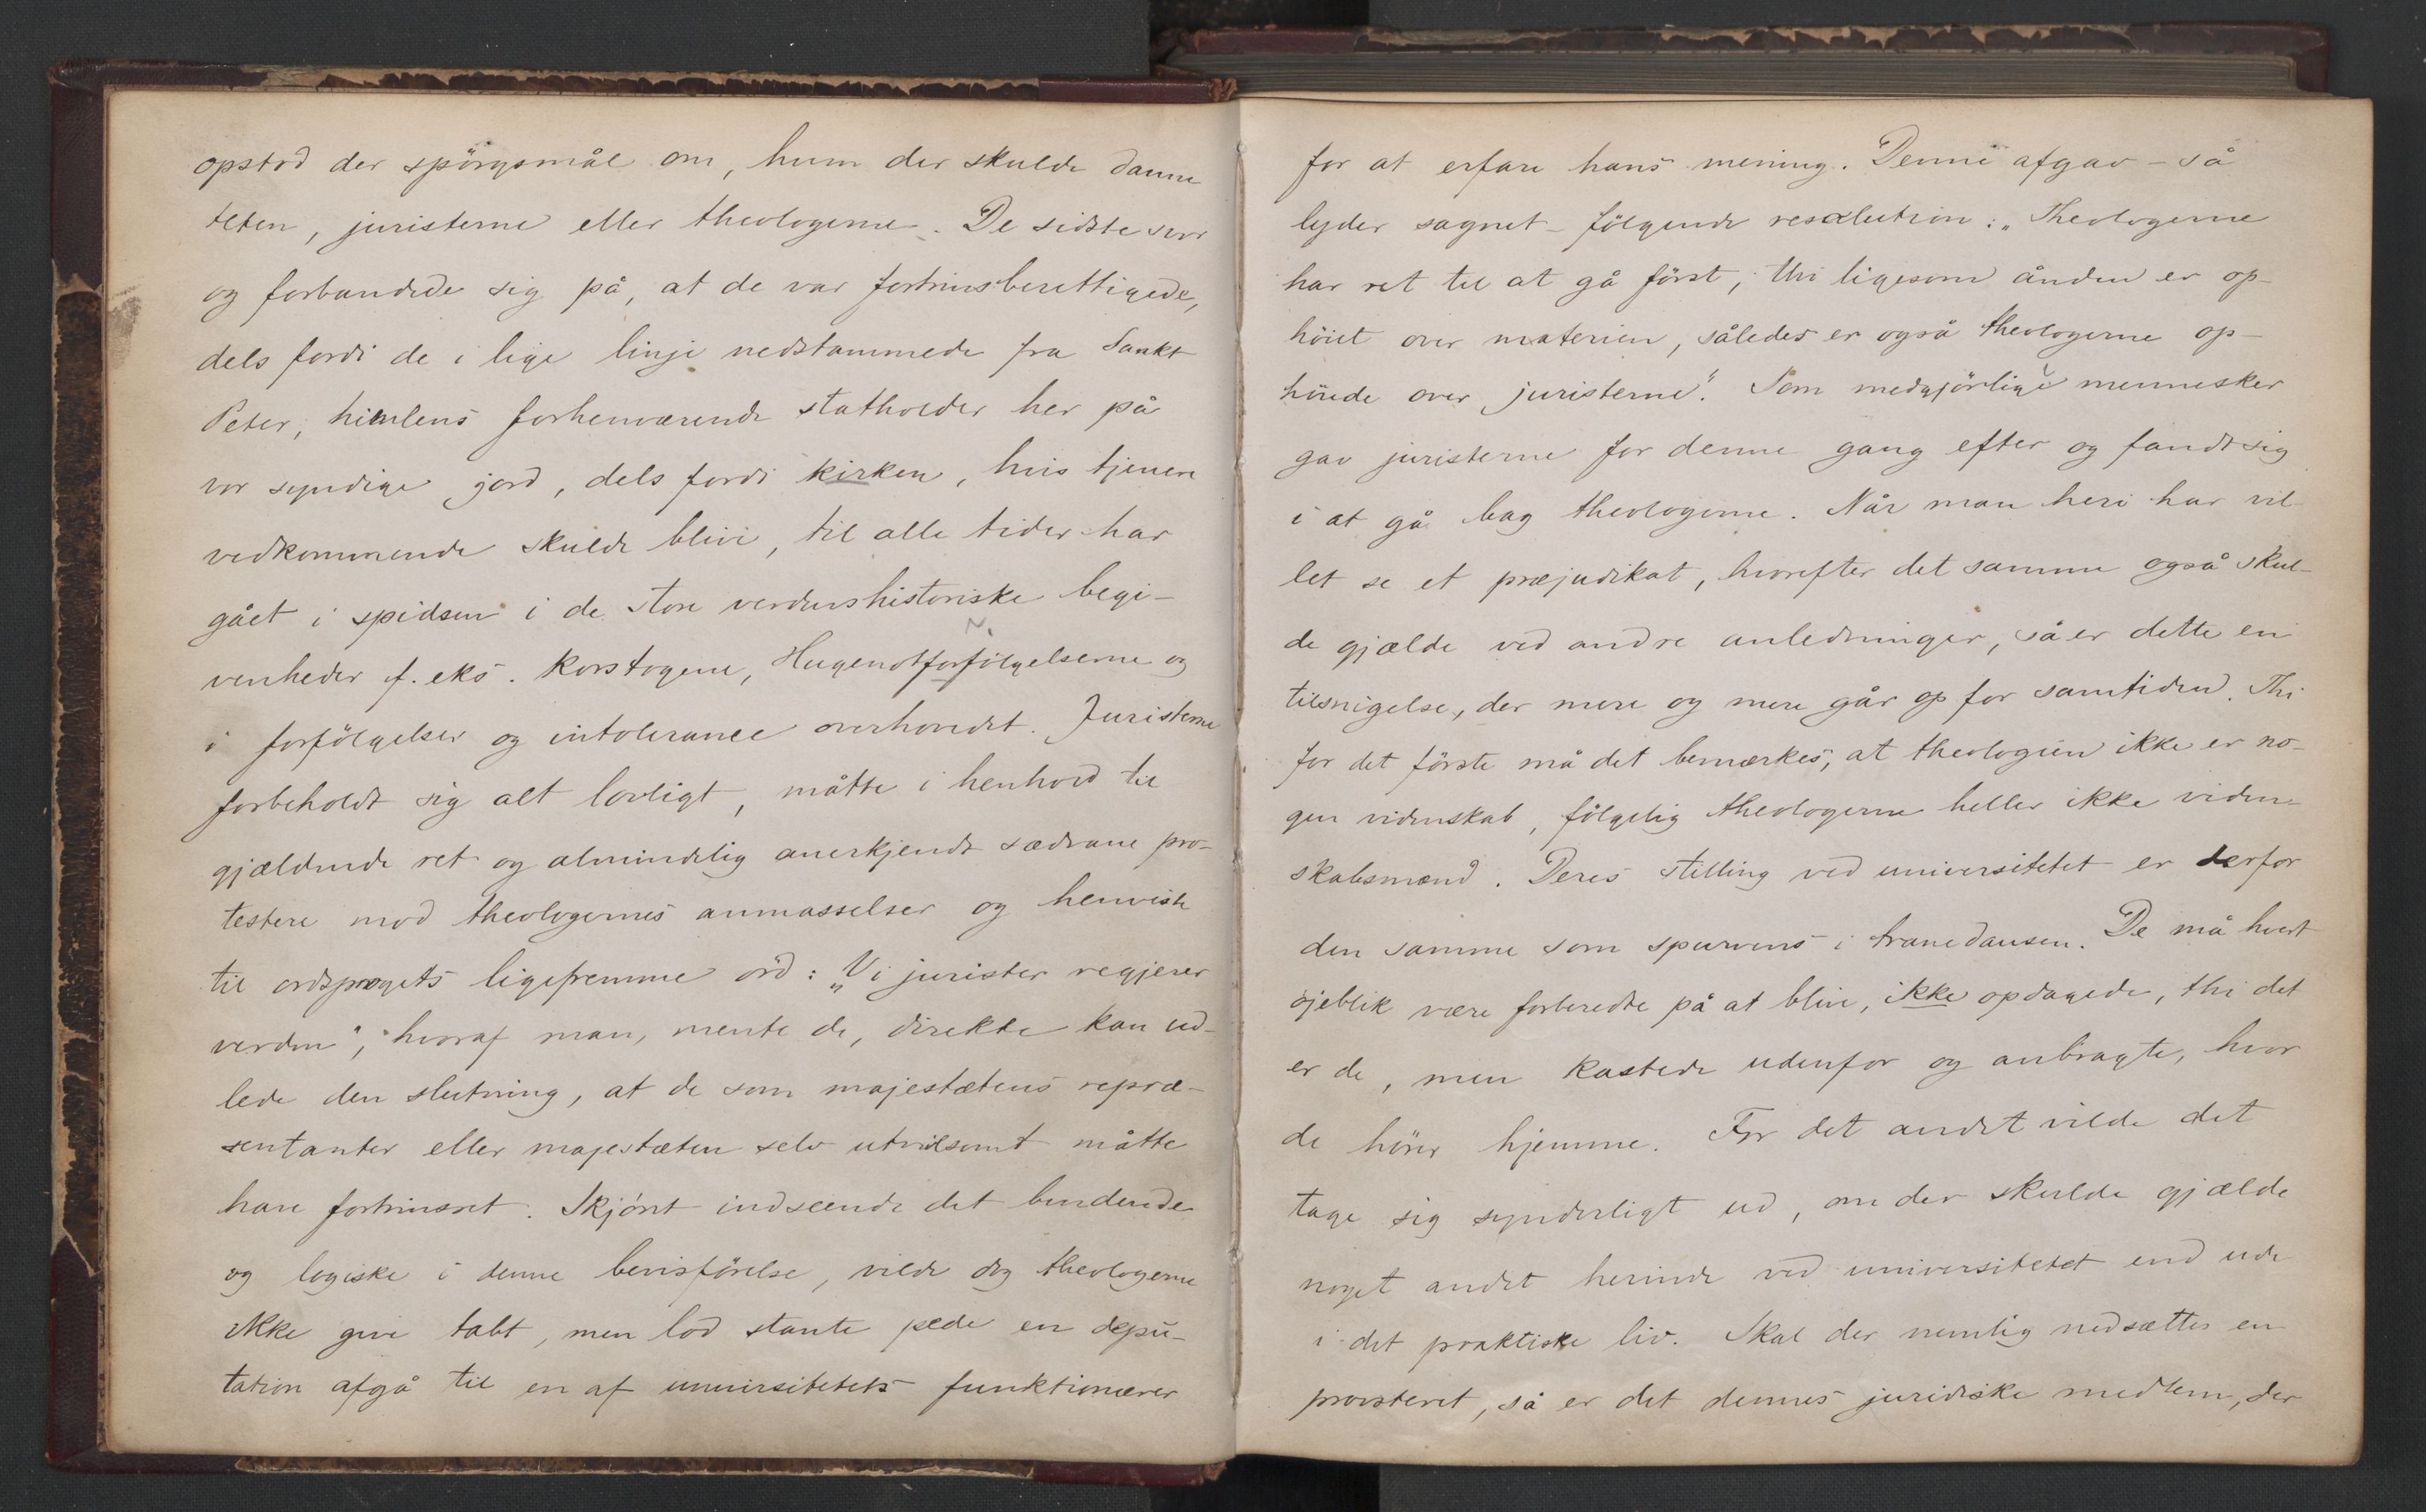 opstod der spörgsmål om, hvem der skulde danne
teten, juristerne eller theologerne. De sidste svor
og forbandede sig på, at de var fortrinsberettigede,
dels fordi de i lige linje nedstammede fra Sankt
Peter, himlens forhenværende statholder her på
vor syndige jord, dels fordi kirken, hvis tjenere
vedkommende skulde blive, til alle tider har
gået i spidsen i de store verdenshistoriske begi-
venheder f. eks. korstogene, Hugenotforfölgelserne og
i forfölgelser og intolerance overhovedet. Juristerne
forbeholdt sig alt lovligt, måtte i henhold til
gjældende ret og almindelig anerkjendt sædvane pro-
testere mod theologernes anmasselser og henviste
til ordsprogets ligefremme ord: „Vi jurister regjerer
verden", hvoraf man, mente de, direkte kan ud-
lede den slutning, at de som majestætens repræ-
sentanter eller majestæten selv utvilsomt måtte
have fortrinsret. Skjönt indseende det bindende
og logiske i denne bevisförelse, vilde dog theologerne
ikke give tabt, men lod stante pede en depu-
tation afgå til en af universitetets funktionærer
for at erfare hans mening. Denne afgav - så
lyder sagnet - fölgende resolution: „Theologerne
har ret til at gå först; thi ligesom ånden er op-
höiet over materien, således er også theologerne op-
höiede over juristerne". Som medgjörlige mennesker
gav juristerne for denne gang efter og fandt sig
i at gå bag theologerne. Når man heri har vil-
let se et præjudikat, hvorefter det samme også skul-
de gjælde ved andre anledninger, så er dette en
tilsnigelse, der mere og mere går op for samtiden. Thi
for det förste må det bemærkes, at theologien ikke er no-
gen videnskab, fölgelig theologerne heller ikke viden-
skabsmænd. Deres stilling ved universitetet er derfor
den samme som spurvens i tranedansen. De må hvert
öjeblik være forberedte på at blive, ikke opdagede, thi det
er de, men kastede udenfor og anbragte, hvor
de hörer hjemme. For det andet vilde det
tage sig synderligt ud, om der skulde gjælde
noget andet herinde ved universitetet end ude
i det praktiske liv. Skal der nemlig nedsættes en
provsteret, så er det dennes juridiske medlem, der